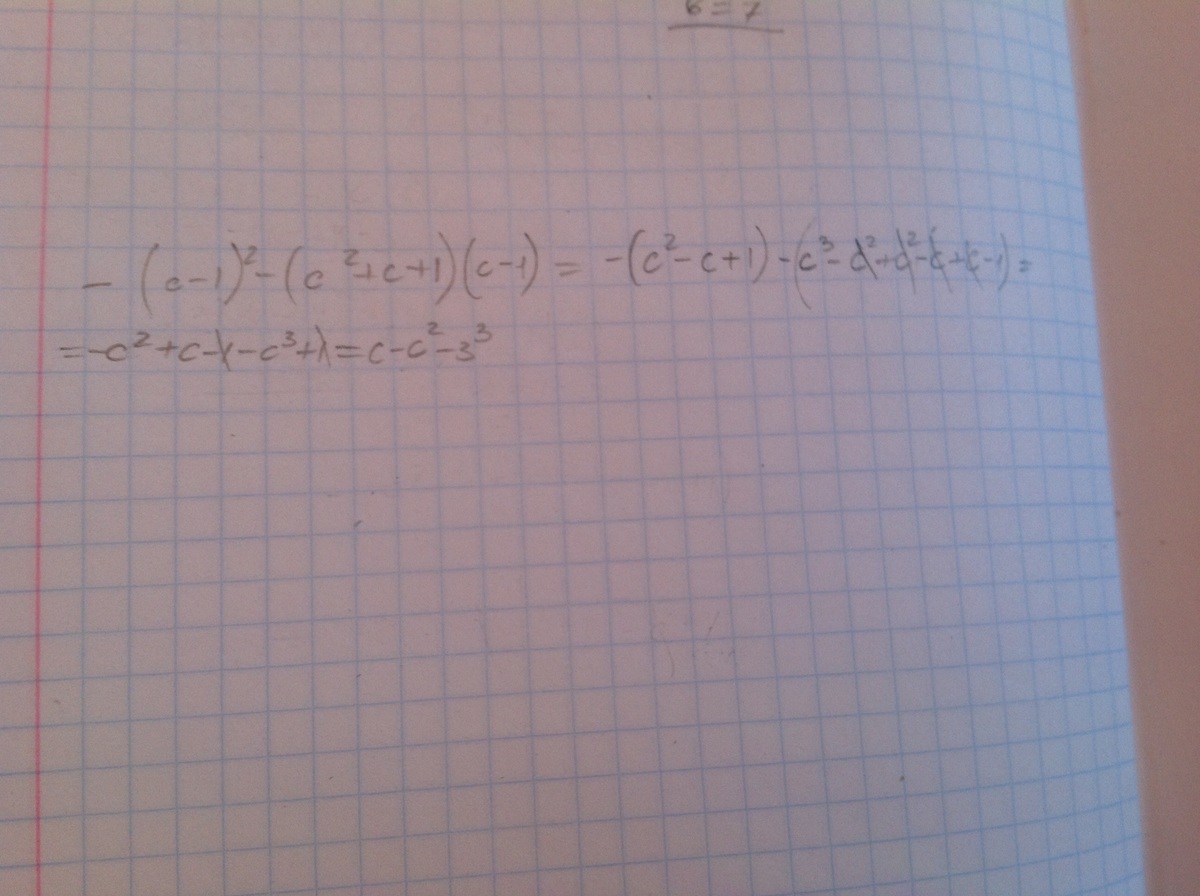 6 = 7
- (c-1)² - (c² + c + 1)(c-1) = -(c² - c + 1) - (c³ - c² + c² - c + c - 1) =
= -c² + c - 1 - c³ + 1 = c - c² - 3³